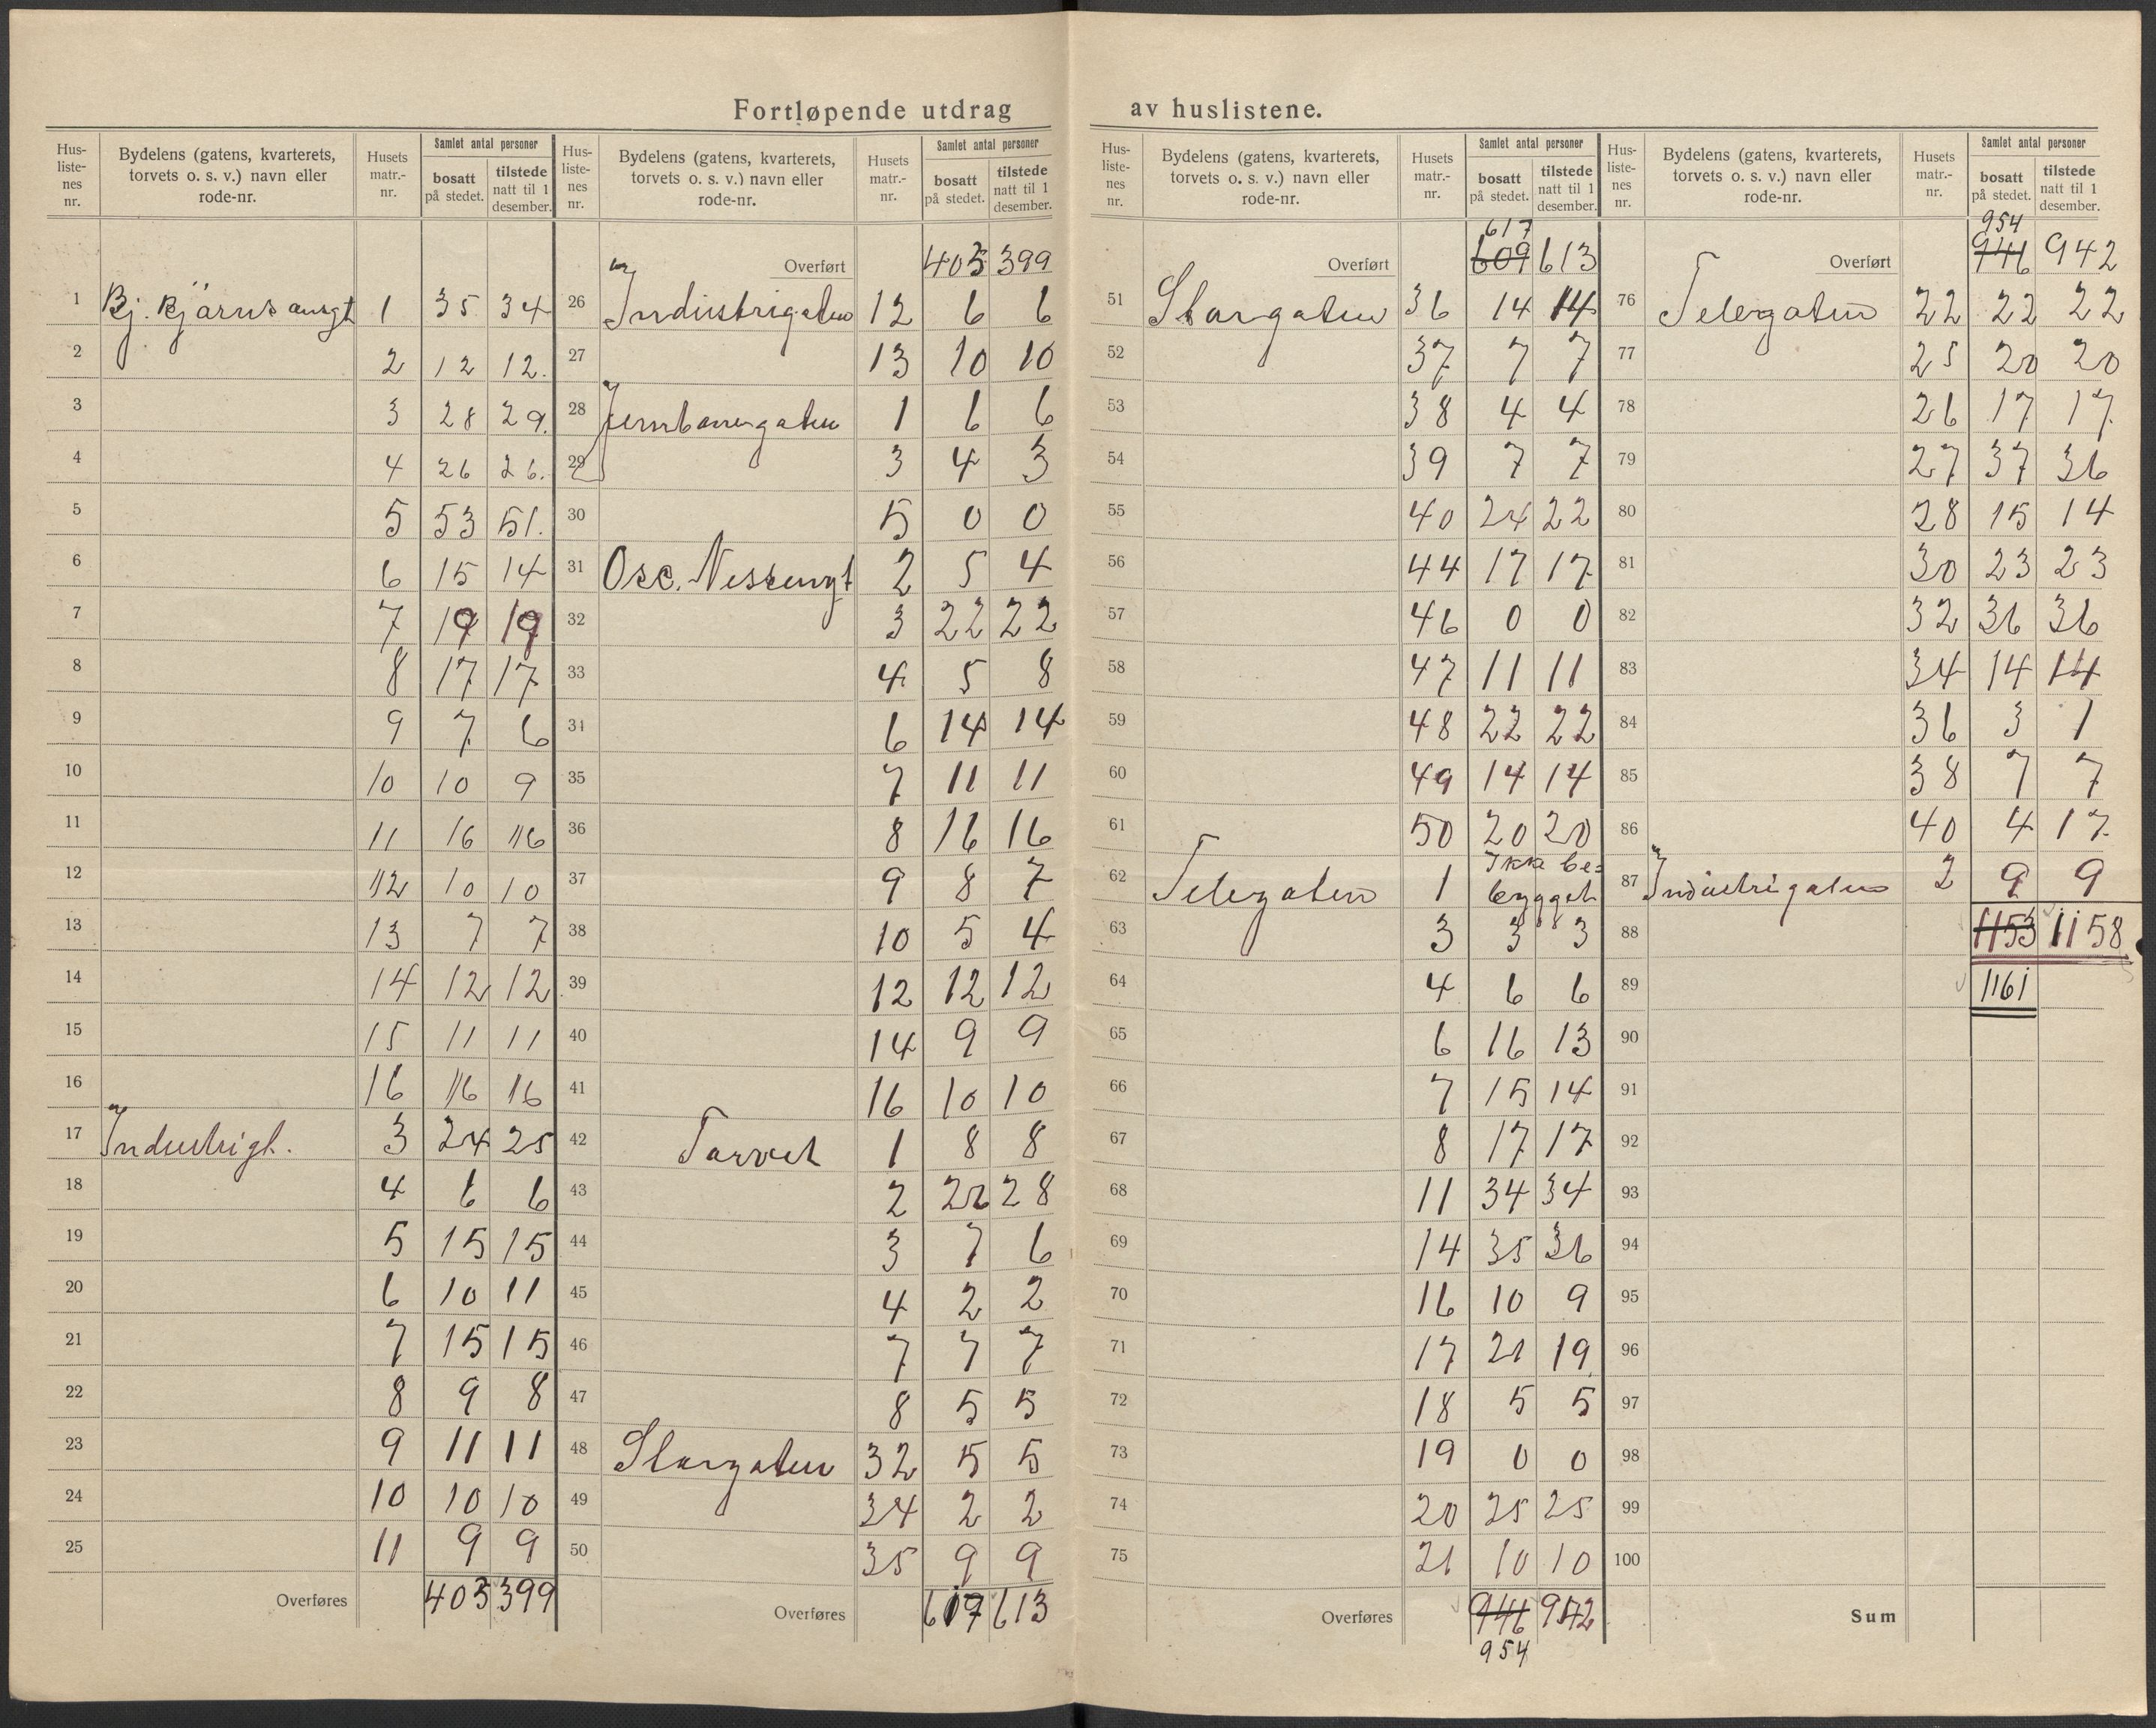 Fortløpende utdrag av huslistene.
Hus-listenes nr. Bydelens (gatens, kvarterets, torvets o. s. v.) navn eller rode-nr. Husets matr.-nr. Samlet antal personer bosatt på stedet. tilstede natt til 1 desember.
1 Bj. Bjärnsäursgt 1 35 34
2 2 12 12.
3 3 28 29.
4 4 26 26.
5 5 53 51.
6 6 15 14
7 7 19 19
8 8 17 17
9 9 7 6
10 10 10 9
11 11 16 16
12 12 10 10
13 13 7 7
14 14 12 12
15 15 11 11
16 16 16 16
17 Industrigt. 3 24 25
18 4 6 6
19 5 15 15
20 6 10 11
21 7 15 15
22 8 9 8
23 9 11 11
24 10 10 10
25 11 9 9
Overføres 403 399
Hus-listenes nr. Bydelens (gatens, kvarterets, torvets o. s. v.) navn eller rode-nr. Husets matr.-nr. Samlet antal personer bosatt på stedet. tilstede natt til 1 desember.
Overført 403 399
26 Industrigaten 12 6 6
27 13 10 10
28 Jernbanegaten 1 6 6
29 3 4 3
30 5 0 0
31 Osc. Nissengt 2 5 4
32 3 22 22
33 4 5 8
34 6 14 14
35 7 11 11
36 8 16 16
37 9 8 7
38 10 5 4
39 12 12 12
40 14 9 9
41 16 10 10
42 Torvet 1 8 8
43 2 26 28
44 3 7 6
45 4 2 2
46 7 7 7
47 8 5 5
48 Storgaten 32 5 5
49 34 2 2
50 35 9 9
Overføres 617 613
Hus-listenes nr. Bydelens (gatens, kvarterets, torvets o. s. v.) navn eller rode-nr. Husets matr.-nr. Samlet antal personer bosatt på stedet. tilstede natt til 1 desember.
617
Overført 609 613
51 Storgaten 36 14 14
52 37 7 7
53 38 4 4
54 39 7 7
55 40 24 22
56 44 17 17
57 46 0 0
58 47 11 11
59 48 22 22
60 49 14 14
61 50 20 20
62 Telegaten 1 Ikke be=
bygget
63 3 3 3
64 4 6 6
65 6 16 13
66 7 15 14
67 8 17 17
68 11 34 34
69 14 35 36
70 16 10 9
71 17 21 19
72 18 5 5
73 19 0 0
74 20 25 25
75 21 10 10
Overføres 946 942
954
Hus-listenes nr. Bydelens (gatens, kvarterets, torvets o. s. v.) navn eller rode-nr. Husets matr.-nr. Samlet antal personer bosatt på stedet. tilstede natt til 1 desember.
954
Overført 946 942
76 Telegaten 22 22 22
77 25 20 20
78 26 17 17
79 27 37 36
80 28 15 14
81 30 23 23
82 32 36 36
83 34 14 14
84 36 3 1
85 38 7 7
86 40 4 17
87 Industrigaten 2 9 9
88 1153 1158
89 1161
90
91
92
93
94
95
96
97
98
99
100
Sum